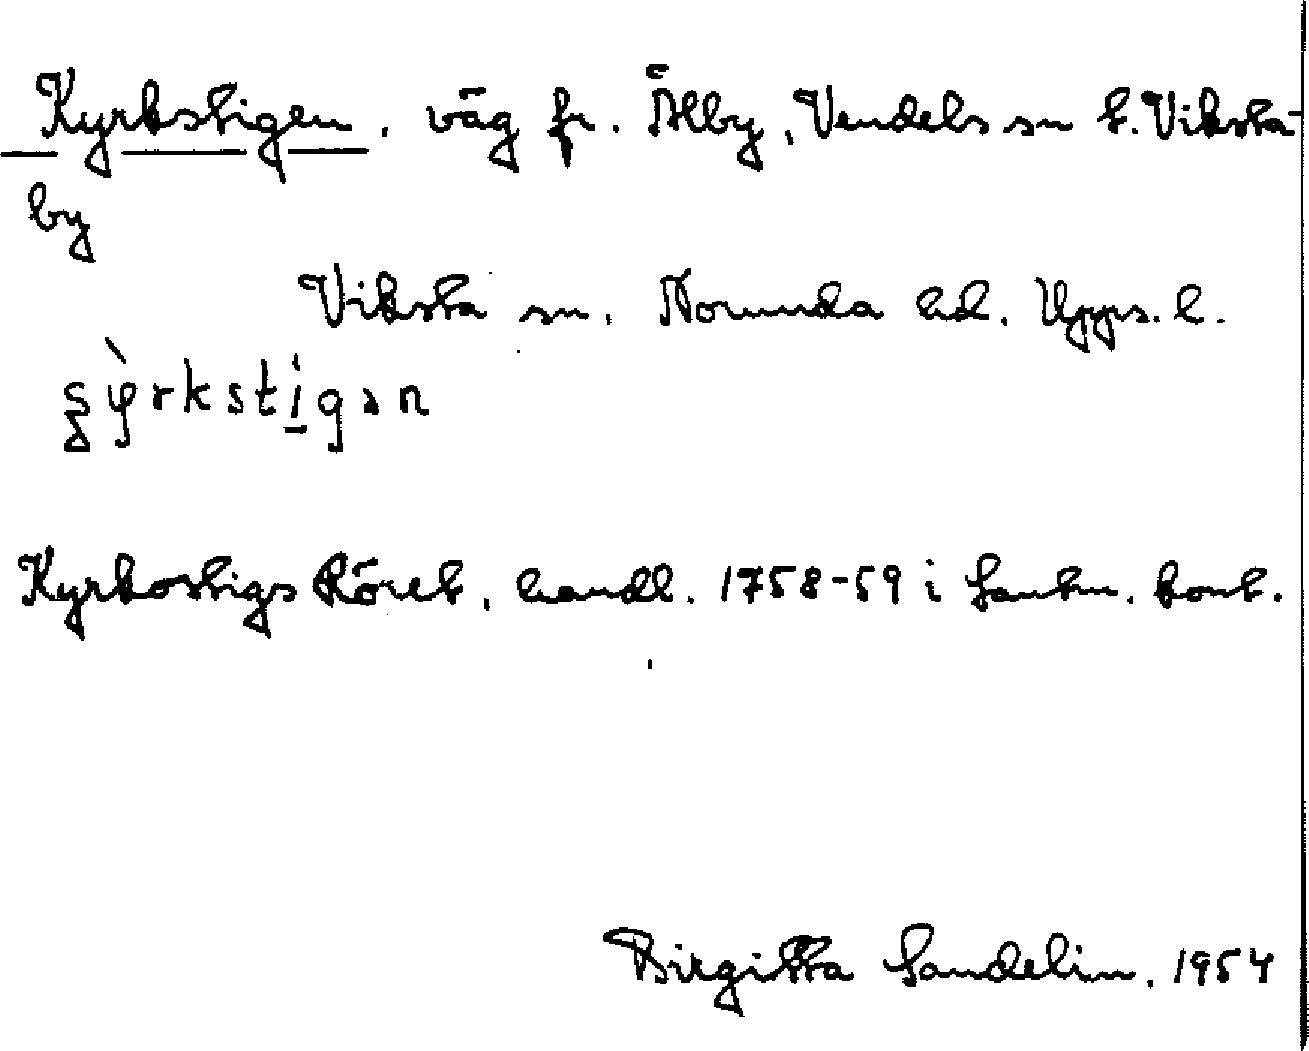 Kyrkstigen, väg fr. Ålby, Vendels sn t. Viksta-
by
Viksta sn. Norunda hd. Upps. l.
Kyrkostigs Röret, handl. 1758-59 i Lantm. kont.
Birgitta Sandelin. 1954